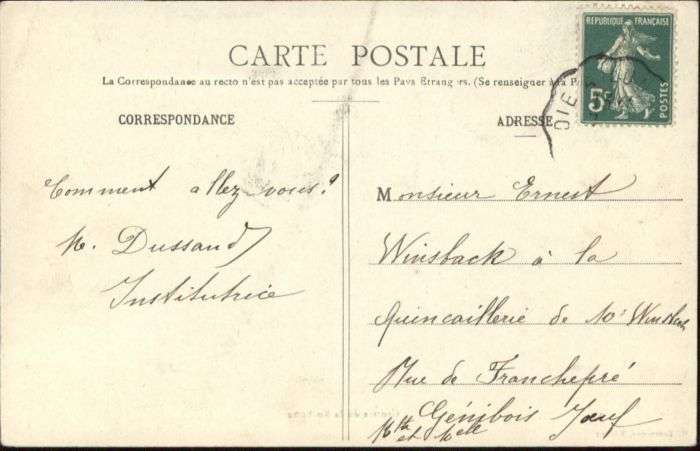 CARTE POSTALE
La Correspondance au recto n'est pas acceptée par tous les Pays Etrangers. (Se renseigner à la P
CORRESPONDANCE
ADRESSE
REPUBLIQUE FRANÇAISE
5c
POSTES
DIE
Comment allez vous?
M. Dussaud
Institutrice
Monsieur Ernest
Winsback à la
Quincaillerie de Mr
Rue de Franchepré
Génibois Jœuf
et Melle